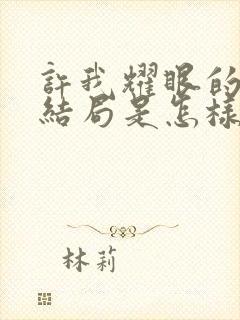 許我耀眼的
結局是怎樣
林莉